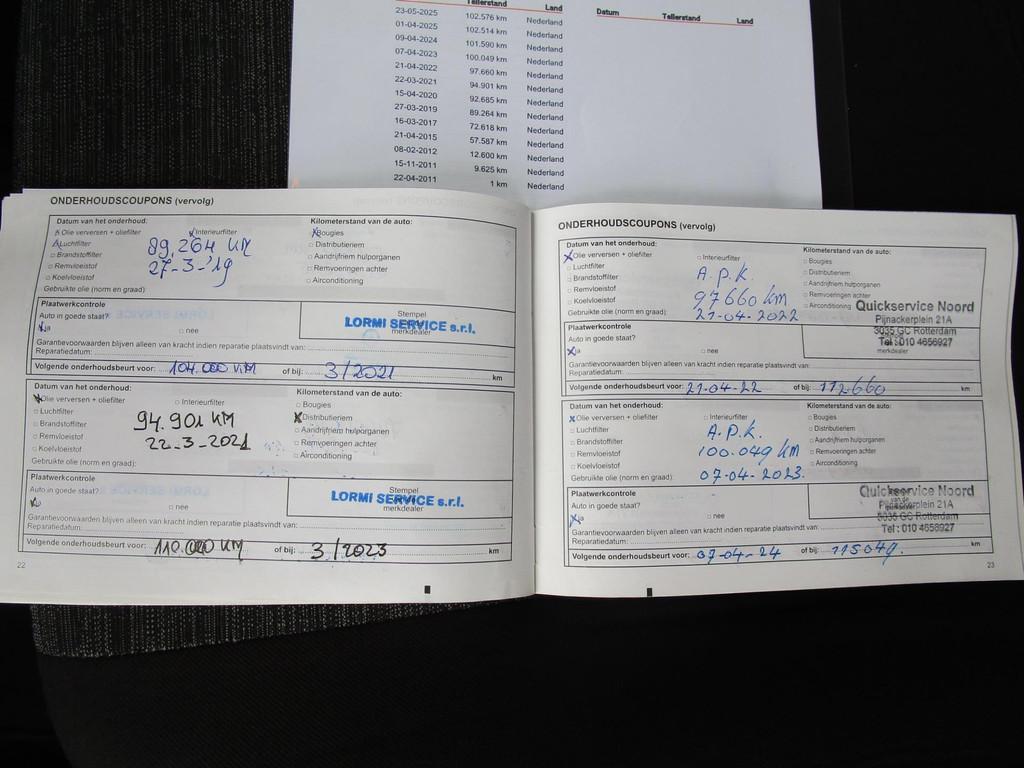 Tellerstand Land
23-05-2025 102.576 km Nederland
01-04-2025 102.514 km Nederland
09-04-2024 101.590 km Nederland
07-04-2023 100.049 km Nederland
21-04-2022 97.660 km Nederland
22-03-2021 94.901 km Nederland
15-04-2020 92.685 km Nederland
27-03-2019 89.264 km Nederland
16-03-2017 72.618 km Nederland
21-04-2015 57.587 km Nederland
08-02-2012 12.600 km Nederland
15-11-2011 9.625 km Nederland
22-04-2011 1 km Nederland
Datum Tellerstand Land
ONDERHOUDSCOUPONS (vervolg)
Datum van het onderhoud: Kilometerstand van de auto:
Olie verversen + oliefilter Interieurfilter Bougies
Luchtfilter Distributieriem
Brandstoffilter Aandrijfriem hulporganen
Remvloeistof Remvoeringen achter
Koelvloeistof Airconditioning
89.264 KM
27-3-'19
Gebruikte olie (norm en graad):
Plaatwerkcontrole
Auto in goede staat?
ja nee
Stempel
LORMI SERVICE s.r.l.
merkdealer
Garantievoorwaarden blijven alleen van kracht indien reparatie plaatsvindt van:
Reparatiedatum:
Volgende onderhoudsbeurt voor: 104.000 KM of bij: 3/2021 km
Datum van het onderhoud: Kilometerstand van de auto:
Olie verversen + oliefilter Interieurfilter Bougies
Luchtfilter Distributieriem
Brandstoffilter Aandrijfriem hulporganen
Remvloeistof Remvoeringen achter
Koelvloeistof Airconditioning
94.901 KM
22-3-2021
Gebruikte olie (norm en graad):
Plaatwerkcontrole
Auto in goede staat?
nee
Stempel
LORMI SERVICE s.r.l.
merkdealer
Garantievoorwaarden blijven alleen van kracht indien reparatie plaatsvindt van:
Reparatiedatum:
Volgende onderhoudsbeurt voor: 110.000 KM of bij: 3/2023 km
22
ONDERHOUDSCOUPONS (vervolg)
Datum van het onderhoud: Kilometerstand van de auto:
Olie verversen + oliefilter Interieurfilter Bougies
Luchtfilter Distributieriem
Brandstoffilter Aandrijfriem hulporganen
Remvloeistof Remvoeringen achter
Koelvloeistof Airconditioning
A.p.k.
97660 km
Gebruikte olie (norm en graad): 21-04-2022
Plaatwerkcontrole
Auto in goede staat?
ja nee
Quickservice Noord
Pijnackerplein 21A
3035 GC Rotterdam
Tel: 010 4656927
merkdealer
Garantievoorwaarden blijven alleen van kracht indien reparatie plaatsvindt van:
Reparatiedatum:
Volgende onderhoudsbeurt voor: 21-04-22 of bij: 112660 km
Datum van het onderhoud: Kilometerstand van de auto:
Olie verversen + oliefilter Interieurfilter Bougies
Luchtfilter Distributieriem
Brandstoffilter Aandrijfriem hulporganen
Remvloeistof Remvoeringen achter
Koelvloeistof Airconditioning
A.p.k.
100.049 km
Gebruikte olie (norm en graad): 07-04-2023.
Plaatwerkcontrole
Auto in goede staat?
ja nee
Quickservice Noord
Pijnackerplein 21A
3035 GC Rotterdam
Tel: 010 4656927
Garantievoorwaarden blijven alleen van kracht indien reparatie plaatsvindt van:
Reparatiedatum:
Volgende onderhoudsbeurt voor: 07-04-24 of bij: 115049. km
23